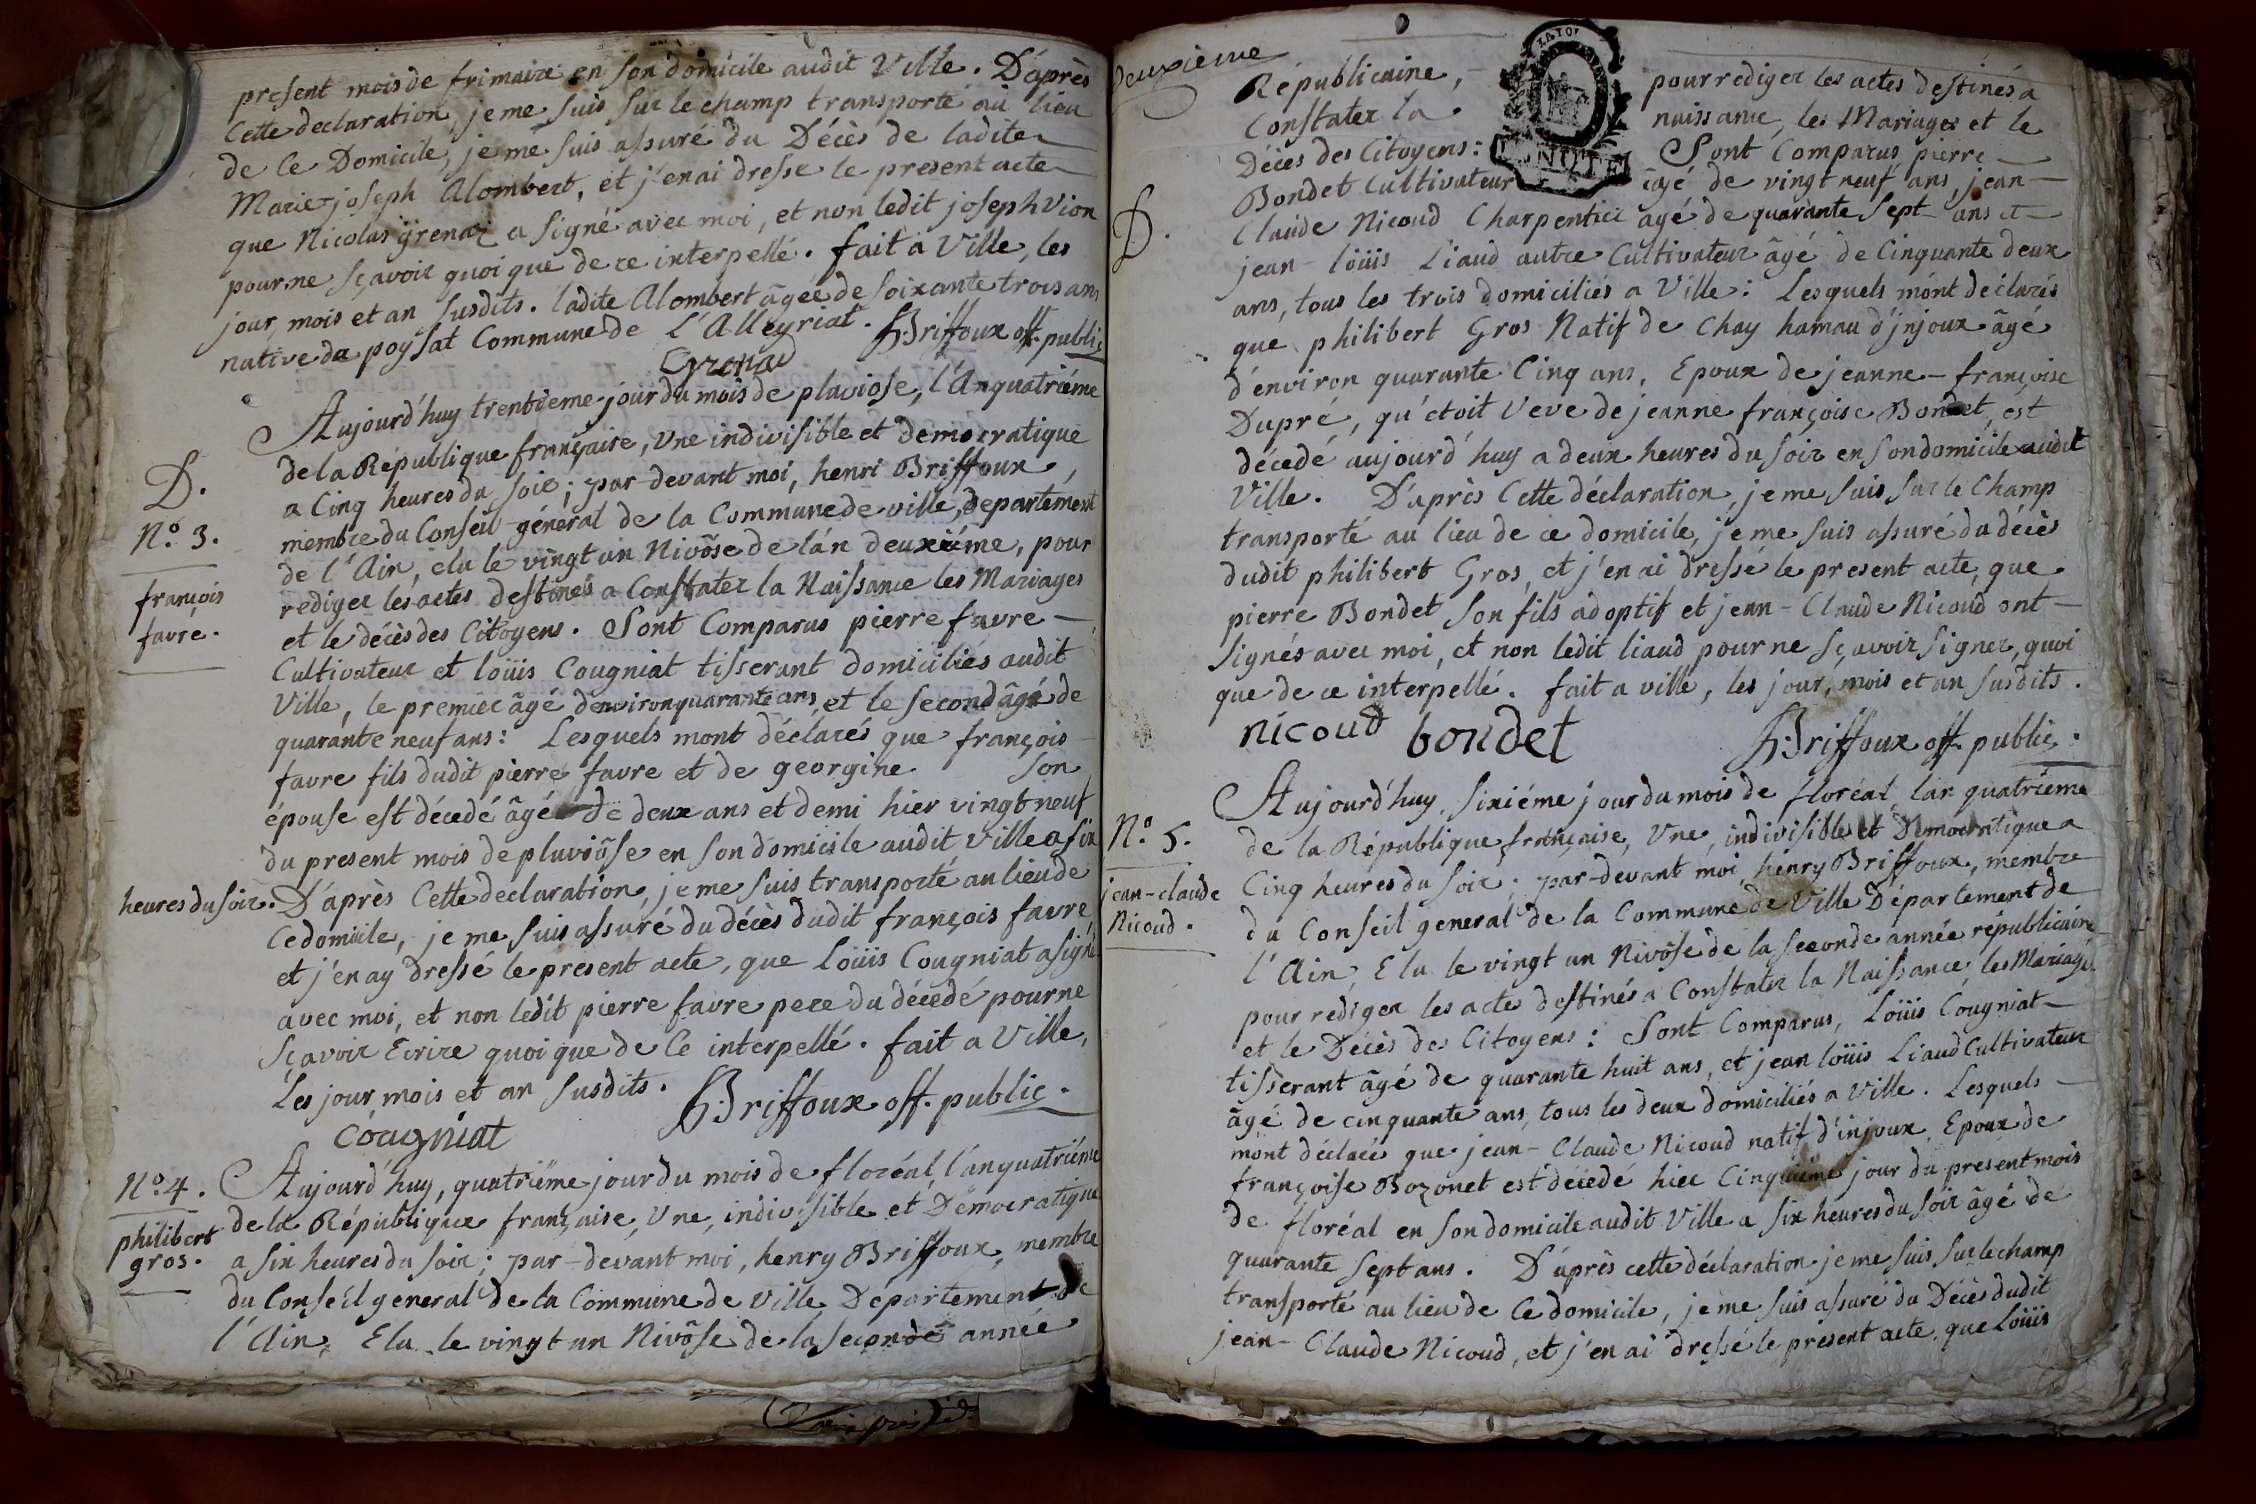 present mois de frimaire en son domicile audit Ville. D'après
Cette declaration, je me suis sur le champ transporté au lieu
de ce Domicile, je me suis assuré du Décès de ladite
Marie-joseph Alombert, et j'en ai dressé le present acte
que Nicolas grenar a signé avec moi, et non ledit joseph Vion
pour ne sçavoir quoi que de ce interpellé. fait a Ville, les
jour, mois et an susdits. ladite Alombert âgée de soixante trois ans
native du poysat Commune de L'Alleyriat. H. Briffoux off. public
Grenar
Aujourd'huy trentieme jour du mois de pluviose, l'An quatriéme
de la République française, Une indivisible et democratique
D. a Cinq heures du soir; par-devant moi, henri Briffoux,
membre du Conseil général de la Commune de ville, departement
N.º 3. de l'Ain, elu le vingt un Nivôse de lán deuxiéme, pour
françois rediger les actes destinés a Constater la Naissance les Mariages
favre. et le décès des Citoyens. Sont Comparus pierre favre
Cultivateur et loüis Cougniat tisserant domiciliés audit
Ville, le premier âgé denviron quarante ans, et le second âgé de
quarante neuf ans: Lesquels mont déclarés que françois
favre fils dudit pierre favre et de georgine son
épouse est décedé âgé de deux ans et demi hier vingt neuf
du present mois de pluviôse en son domicile audit Ville a six
heures du soir. D'après Cette declaration, je me suis transporté au lieu de
Ce domicile, je me suis assuré du décès dudit françois favre
et j'en ay dressé le present acte, que Loüis Cougniat a signé
avec moi, et non ledit pierre favre pere du décedé pour ne
sçavoir Ecrire quoi que de Ce interpellé. fait a Ville,
Les jour mois et an susdits. H. Briffoux off. public.
Cougniat
N.º 4. Aujourd'huy, quatriëme jour du mois de floréal, l'an quatriéme
philibert de la République française, Une, indivisible et Démocratique
gros. a six heures du soir; par-devant moi, henry Briffoux, membre
du Conseil general de la Commune de Ville Département de
l'Ain, Elu le vingt un Nivôse de la seconde année
deuxième
Républicaine, pour rediger les actes destinés a
Constater la naissance, les Mariages et le
Décès des Citoyens: Sont Comparus pierre
Bondet Cultivateur âgé de vingt neuf ans, jean-
D. Claude Nicoud Charpentier âgé de quarante sept ans et
jean-loüis Liaud autre Cultivateur âgé de Cinquante deux
ans, tous les trois domiciliés a Ville: Lesquels mónt déclarés
que philibert Gros Natif de Chay hamau d'jnjoux âgé
d'environ quarante Cinq ans, Epoux de jeanne-françoise
Dupré, qu'etoit Veve de jeanne françoise Bondet, est
décedé aujourd'huy a deux heures du soir en son domicile audit
Ville. D'après Cette déclaration, je me suis sur le Champ
transporté au lieu de ce domicile, je me suis assuré du décès
dudit philibert Gros, et j'en ai dressé le present acte, que
pierre Bondet son fils adoptif et jean-Claude Nicoud ont
signés avec moi, et non ledit liaud pour ne sçavoir signer, quoi
que de ce interpellé. fait a ville, les jour, mois et an susdits.
nicoud bondet H. Briffoux off. public.
Aujourd'huy, sixiéme jour du mois de floréal, lan quatrieme
N.º 5. de la République française, Une, indivisible et Democratique a
jean-claude Cinq heures du soir; par-devant moi, henry Briffoux, membre
Nicoud. du Conseil general de la Commune de Ville Département de
l'Ain, Elu le vingt un Nivôse de la seconde année républicaine
pour rediger les actes destinés a Constater la Naissance, les Mariages
et le Décès des Citoyens: Sont Comparus, Loüis Cougniat
tisserant âgé de quarante huit ans, et jean loüis Liaud Cultivateur
âgé de cinquante ans, tous les deux domiciliés a Ville. Lesquels
mónt déclaré que jean-Claude Nicoud natif d'injoux, Epoux de
françoise Bozonet est décedé hier Cinquieme jour du present mois
de floréal en son domicile audit Ville a six heures du soir âgé de
quarante sept ans. D'après cette déclaration je me suis sur le champ
transporté au lieu de Ce domicile, je me suis assuré du Décès dudit
jean-Claude Nicoud, et j'en ai dressé le present acte, que Loüis